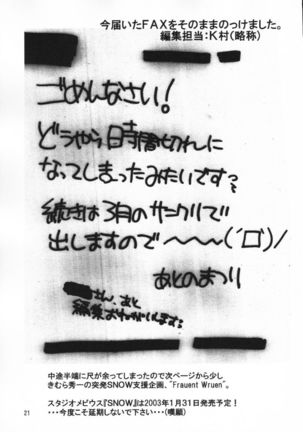 今届いたＦＡＸをそのままのっけました。
編集担当：Ｋ村（略称）
ごめんなさい！
どうやら時間切れに
なってしまったみたいです
続きは3月のサンクリで
出しますので〜〜〜(´ロ`)ノ
あとのまつり
さん、あと
編集おねがいします
中途半端に尺が余ってしまったので次ページから少し
きむら秀一の突発SNOW支援企画、"Frauent Wruen"。
スタジオメビウス『SNOW』は2003年1月31日発売予定！
・・・今度こそ延期しないで下さい・・・（嘆願）
21